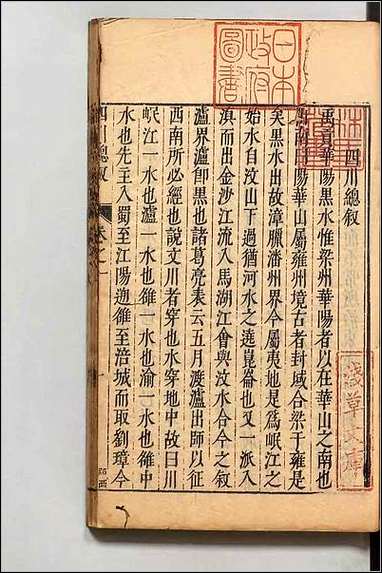 四川總叙
禹貢華陽黑水惟梁州華陽者以在華山之南也
南陽華山屬雍州境古者封域合梁于雍是
矣黑水出故漳臘潘州界今屬夷地是爲岷江之
始水自汶山下過猶河水之遶崑崙也又一派入
滇而出金沙江流入馬湖江會與汶水合今之叙
瀘界瀘卽黑也諸葛亮表云五月渡瀘出師以征
西南所必經也說文川者穿也水穿地中故曰川
岷江一水也瀘一水也雒一水也渝一水也雒中
水也先主入蜀至江陽遡雒至涪城而取劉璋今
四川總叙
卷之一
日本
政府
圖書
淺草文庫